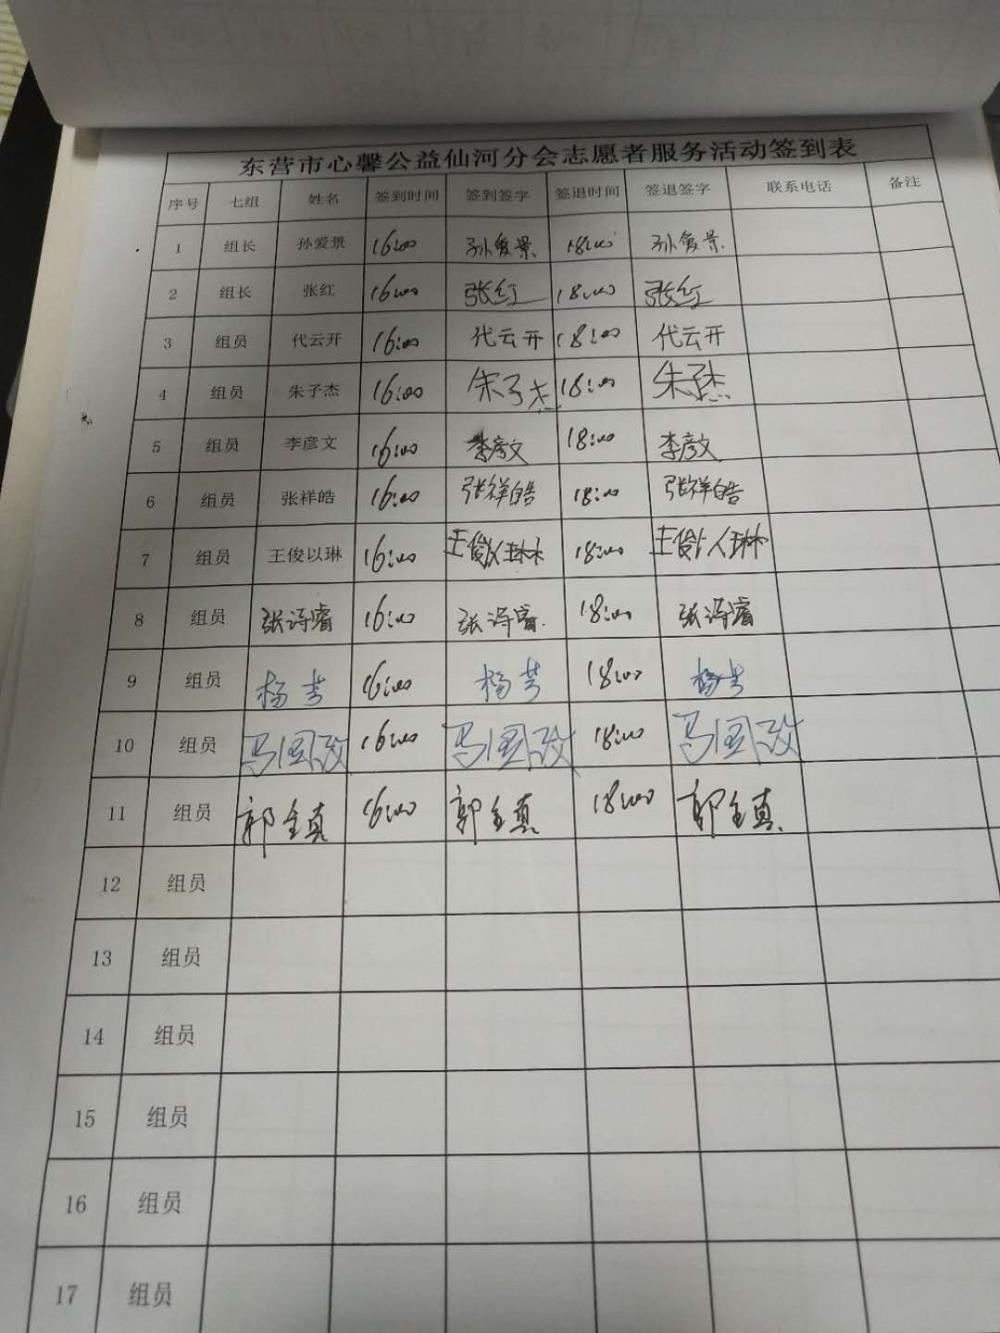 东营市心馨公益仙河分会志愿者服务活动签到表
序号 七组 姓名 签到时间 签到签字 签退时间 签退签字 联系电话 备注
1 组长 孙爱景 16:00 孙爱景 18:00 孙爱景
2 组长 张红 16:00 张红 18:00 张红
3 组员 代云开 16:00 代云开 18:00 代云开
4 组员 朱子杰 16:00 朱子杰 18:00 朱子杰
5 组员 李彦文 16:00 李彦文 18:00 李彦文
6 组员 张祥皓 16:00 张祥皓 18:00 张祥皓
7 组员 王俊以琳 16:00 王俊以琳 18:00 王俊以琳
8 组员 张诗睿 16:00 张诗睿 18:00 张诗睿
9 组员 杨芳 16:00 杨芳 18:00 杨芳
10 组员 马国政 16:00 马国政 18:00 马国政
11 组员 郭全真 16:00 郭全真 18:00 郭全真
12 组员
13 组员
14 组员
15 组员
16 组员
17 组员